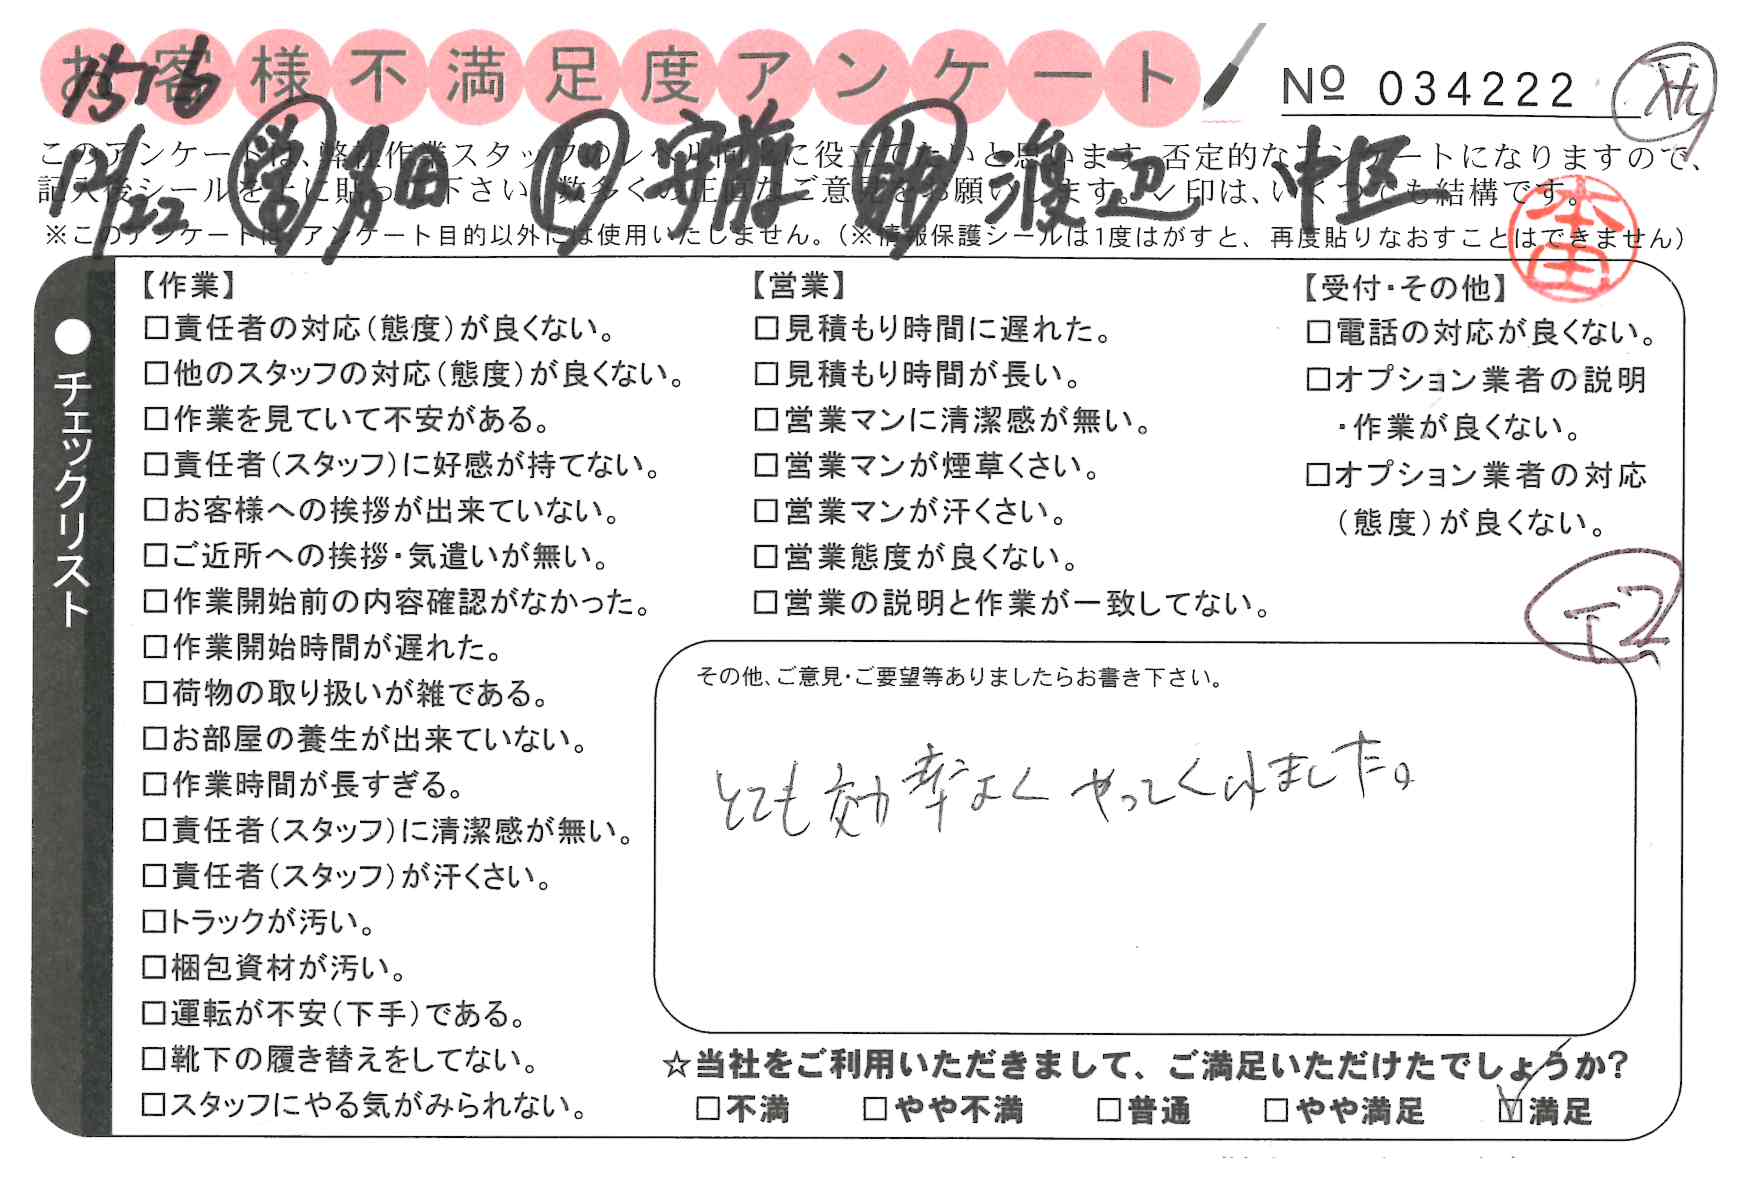 お客様不満足度アンケート
№ 034222
12/22 営 多田 ド 安藤 助 渡辺 中区
このアンケートは、弊社作業スタッフのレベル向上に役立てたいと思います。否定的なアンケートになりますので、
記入後シールを上に貼って下さい。数多くの正直なご意見をお願いします。✓印は、いくつでも結構です。
※このアンケートは、アンケート目的以外には使用いたしません。(※情報保護シールは1度はがすと、再度貼りなおすことはできません)
●チェックリスト
【作業】
□責任者の対応(態度)が良くない。
□他のスタッフの対応(態度)が良くない。
□作業を見ていて不安がある。
□責任者(スタッフ)に好感が持てない。
□お客様への挨拶が出来ていない。
□ご近所への挨拶・気遣いが無い。
□作業開始前の内容確認がなかった。
□作業開始時間が遅れた。
□荷物の取り扱いが雑である。
□お部屋の養生が出来ていない。
□作業時間が長すぎる。
□責任者(スタッフ)に清潔感が無い。
□責任者(スタッフ)が汗くさい。
□トラックが汚い。
□梱包資材が汚い。
□運転が不安(下手)である。
□靴下の履き替えをしてない。
□スタッフにやる気がみられない。
【営業】
□見積もり時間に遅れた。
□見積もり時間が長い。
□営業マンに清潔感が無い。
□営業マンが煙草くさい。
□営業マンが汗くさい。
□営業態度が良くない。
□営業の説明と作業が一致してない。
【受付・その他】
□電話の対応が良くない。
□オプション業者の説明
・作業が良くない。
□オプション業者の対応
(態度)が良くない。
その他、ご意見・ご要望等ありましたらお書き下さい。
とても効率よくやってくれました。
☆当社をご利用いただきまして、ご満足いただけたでしょうか?
□不満 □やや不満 □普通 □やや満足 ☑満足